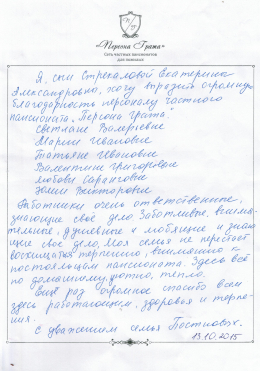 «Персона Грата»
Сеть частных пансионатов
для пожилых
Я, сын Стрекаловой Екатерины
Александровны, хочу выразить огромную
благодарность персоналу частного
пансионата „Персона Грата."
Светлане Валерьевне
Марии Ивановне
Татьяне Ивановне
Валентине Григорьевне
Любови
Юлии Викторовне
Работники очень ответственные,
знающие своё дело. Заботливые, внима-
тельные, душевные и любящие и знаю
щие своё дело. Моя семья не перестаёт
восхищаться терпению, вниманию к
постояльцам пансионата. Здесь всё
по домашнему, уютно, тепло.
Ещё раз огромное спасибо всем
здесь работающим, здоровья и терпе-
ния.
С уважением семья Постновых.
13.10.2015